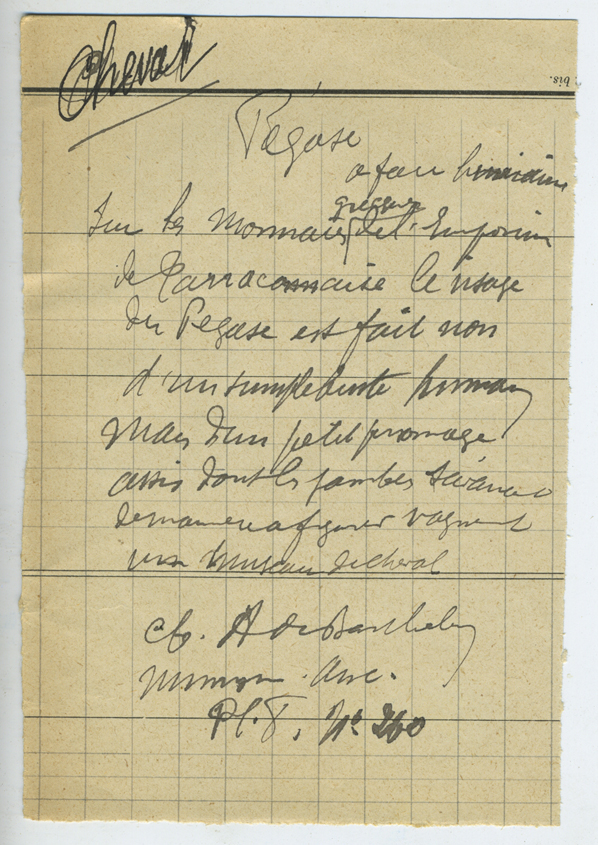 Cheval
bis.
Pégase
a face humaine
grecques
Sur les monnaies de l'Emporium
de Tarraconnaise le visage
du Pégase est fait non
d'un simple buste humain
Mais d'un petit personnage
assis dont les jambes s'avance
de maniere a figurer vaguement
un museau de cheval
cf. A de Barthelemy
numism. anc.
Pl. T, N° 260